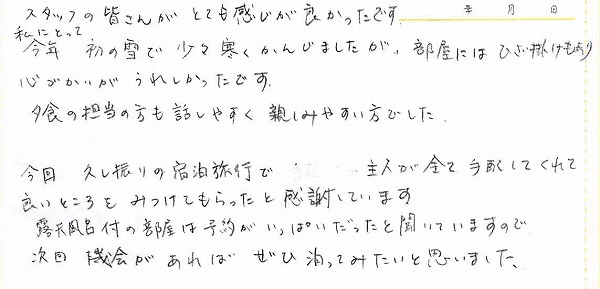 スタッフの皆さんが とても感じが良かったです。
年 月 日
私にとって
今年 初の雪で 少々寒くかんじましたが、部屋には ひざ掛けもあり
心づかいが うれしかったです。
夕食の担当の方も 話しやすく 親しみやすい方でした。
今回 久し振りの宿泊旅行で 主人が全て手配してくれて
良いところを みつけてもらったと 感謝しています
露天風呂付の部屋は 予約が いっぱいだったと聞いていますので
次回 機会があれば ぜひ 泊ってみたいと思いました。